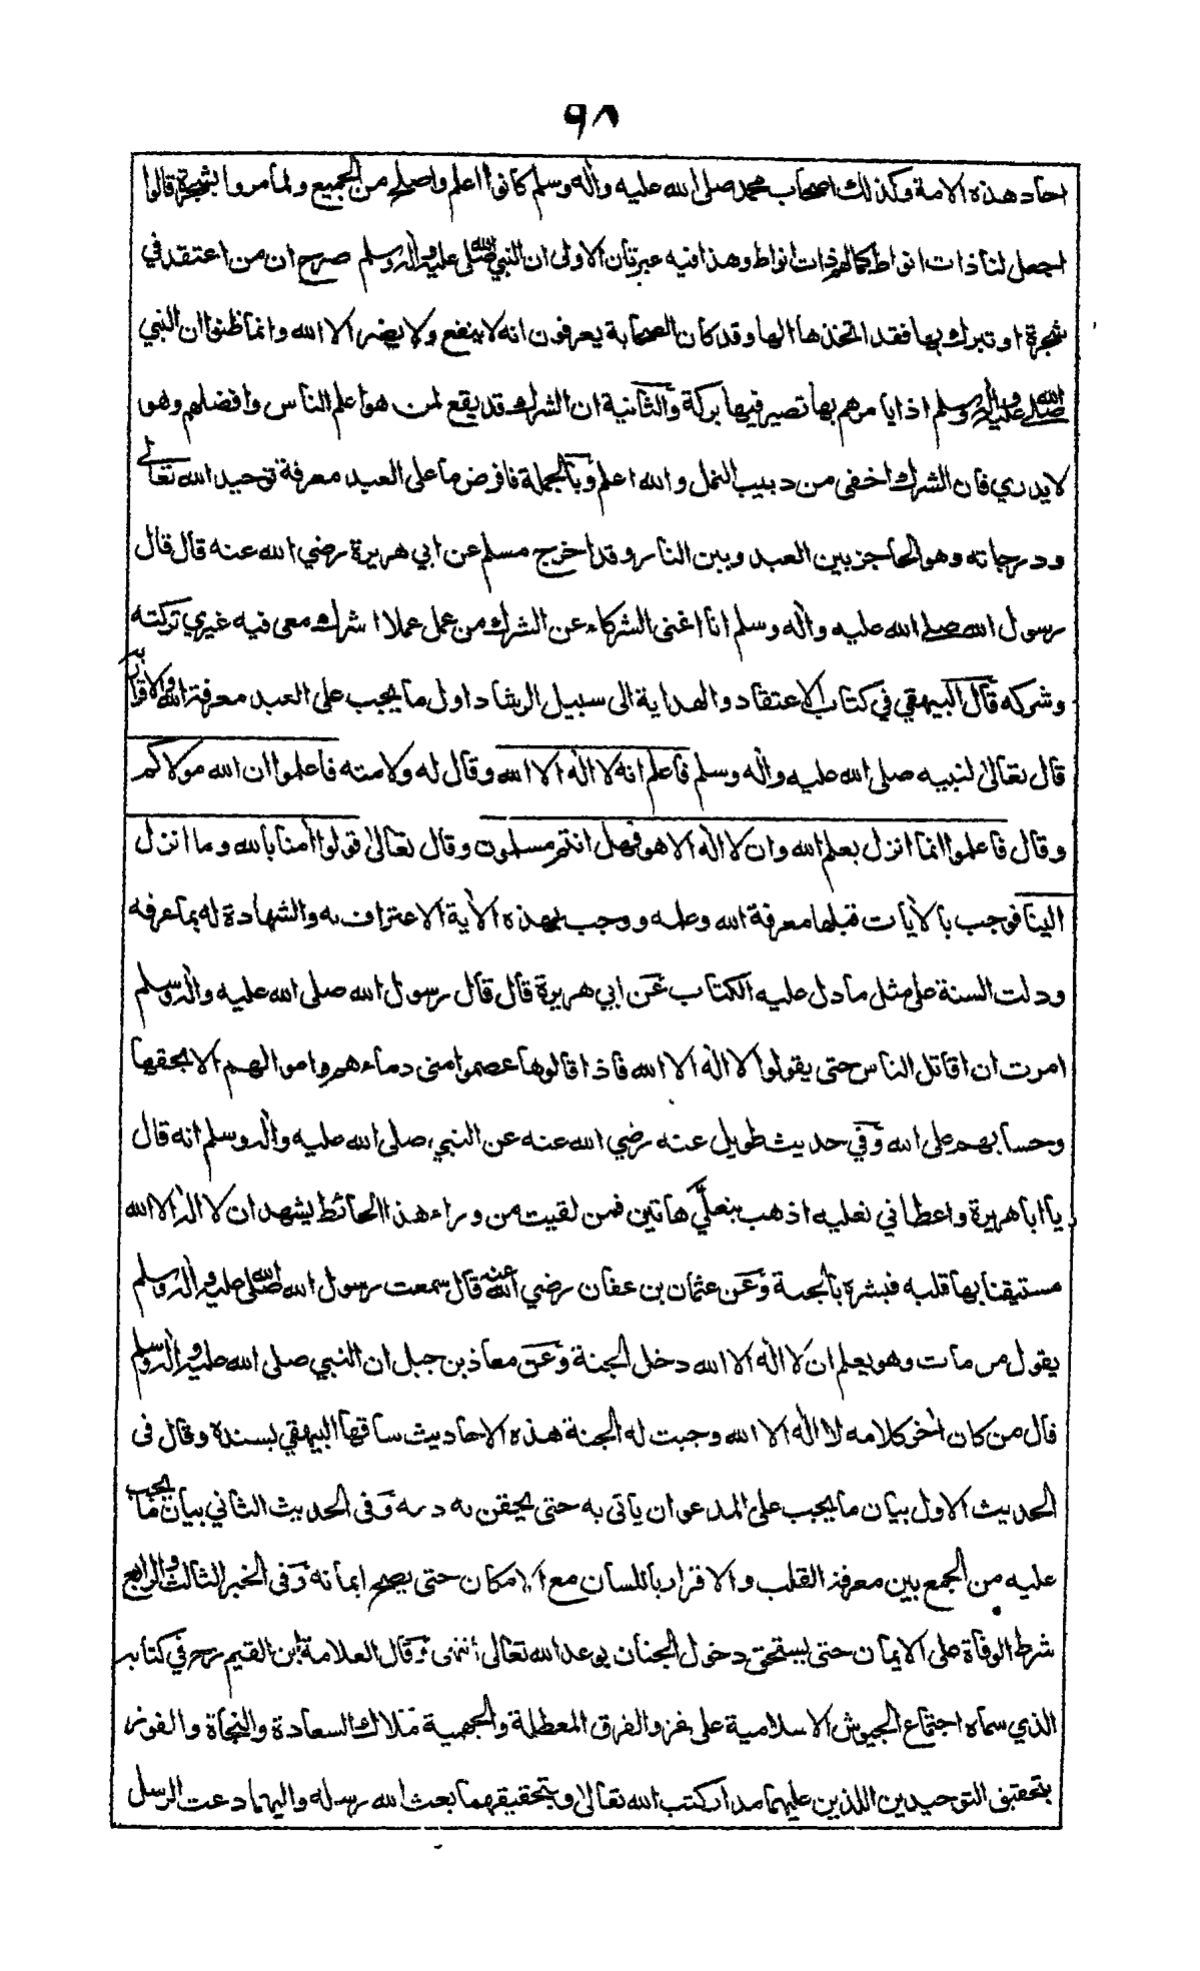 ٩٨
احاد هذه الامة وكذلك اصحاب محمد صلى الله عليه واٰله وسلم كانوا اعلم واصلح من الجميع ولما مروا بشجرة قالوا
اجعل لنا ذات انواط كما لهم ذات انواط وهذا فيه عبرتان الاولى ان النبي صلى الله عليه واٰله وسلم صرح ان من اعتقد في
شجرة او تبرك بها فقد اتخذها الها وقد كان الصحابة يعرفون انه لا ينفع ولا يضر الا الله وانما ظنوا ان النبي
صلى الله عليه واٰله وسلم اذا يامرهم بها تصير فيها بركة والثانية ان الشرك قد يقع لمن هو اعلم الناس وافضلهم وهو
لا يدري فان الشرك اخفى من دبيب النمل والله اعلم وبالجملة فافرض ما على العبد معرفة توحيد الله تعالى
ودرجاته وهو الحاجز بين العبد وبين النار وقد اخرج مسلم عن ابي هريرة رضي الله عنه قال قال
رسول الله صلى الله عليه واٰله وسلم انا اغنى الشركاء عن الشرك من عمل عملا اشرك معى فيه غيري تركته
وشركه قال البيهقي في كتاب الاعتقاد والهداية الى سبيل الرشاد اول ما يجب على العبد معرفة الله والاقرار به
قال تعالى لنبيه صلى الله عليه واٰله وسلم فاعلم انه لا اله الا الله وقال له ولامته فاعلموا ان الله مولاكم
وقال فاعلموا انما انزل بعلم الله وان لا اله الا هو فهل انتم مسلمون وقال تعالى قولوا اٰمنا بالله وما انزل
الينا فوجب بالاٰيات قبلها معرفة الله وعلمه ووجب بهذه الاٰية الاعتراف به والشهادة له بما عرفه
ودلت السنة على مثل ما دل عليه الكتاب عن ابي هريرة قال قال رسول الله صلى الله عليه واٰله وسلم
امرت ان اقاتل الناس حتى يقولوا لا اله الا الله فاذا قالوها عصموا منى دماءهم واموالهم الا بحقها
وحسابهم على الله وفي حديث طويل عنه رضي الله عنه عن النبي صلى الله عليه واٰله وسلم انه قال
يا ابا هريرة واعطاني نعليه اذهب بنعليَّ هاتين فمن لقيت من وراء هذا الحائط يشهد ان لا اله الا الله
مستيقنا بها قلبه فبشره بالجنة وعن عثمان بن عفان رضي الله عنه قال سمعت رسول الله صلى الله عليه واٰله وسلم
يقول من مات وهو يعلم ان لا اله الا الله دخل الجنة وعن معاذ بن جبل ان النبي صلى الله عليه واٰله وسلم
قال من كان اٰخر كلامه لا اله الا الله وجبت له الجنة هذه الاحاديث ساقها البيهقي بسنده وقال فى
الحديث الاول بيان ما يجب على المدعو ان ياتى به حتى يحقن به دمه وفى الحديث الثاني بيان ما يجب
عليه من الجمع بين معرفة القلب والاقرار باللسان مع الامكان حتى يصح ايمانه وفى الخبر الثالث والرابع
شرط الوفاة على الايمان حتى يستحق دخول الجنان بوعد الله تعالى انتهى وقال العلامة ابن القيم رح في كتابه
الذي سماه اجتماع الجيوش الاسلامية على غزو الفرق المعطلة والجهمية ملاك السعادة والنجاة والفوز
بتحقيق التوحيدين اللذين عليهما مدار كتب الله تعالى وبتحقيقهما بعث الله رسله واليهما دعت الرسل